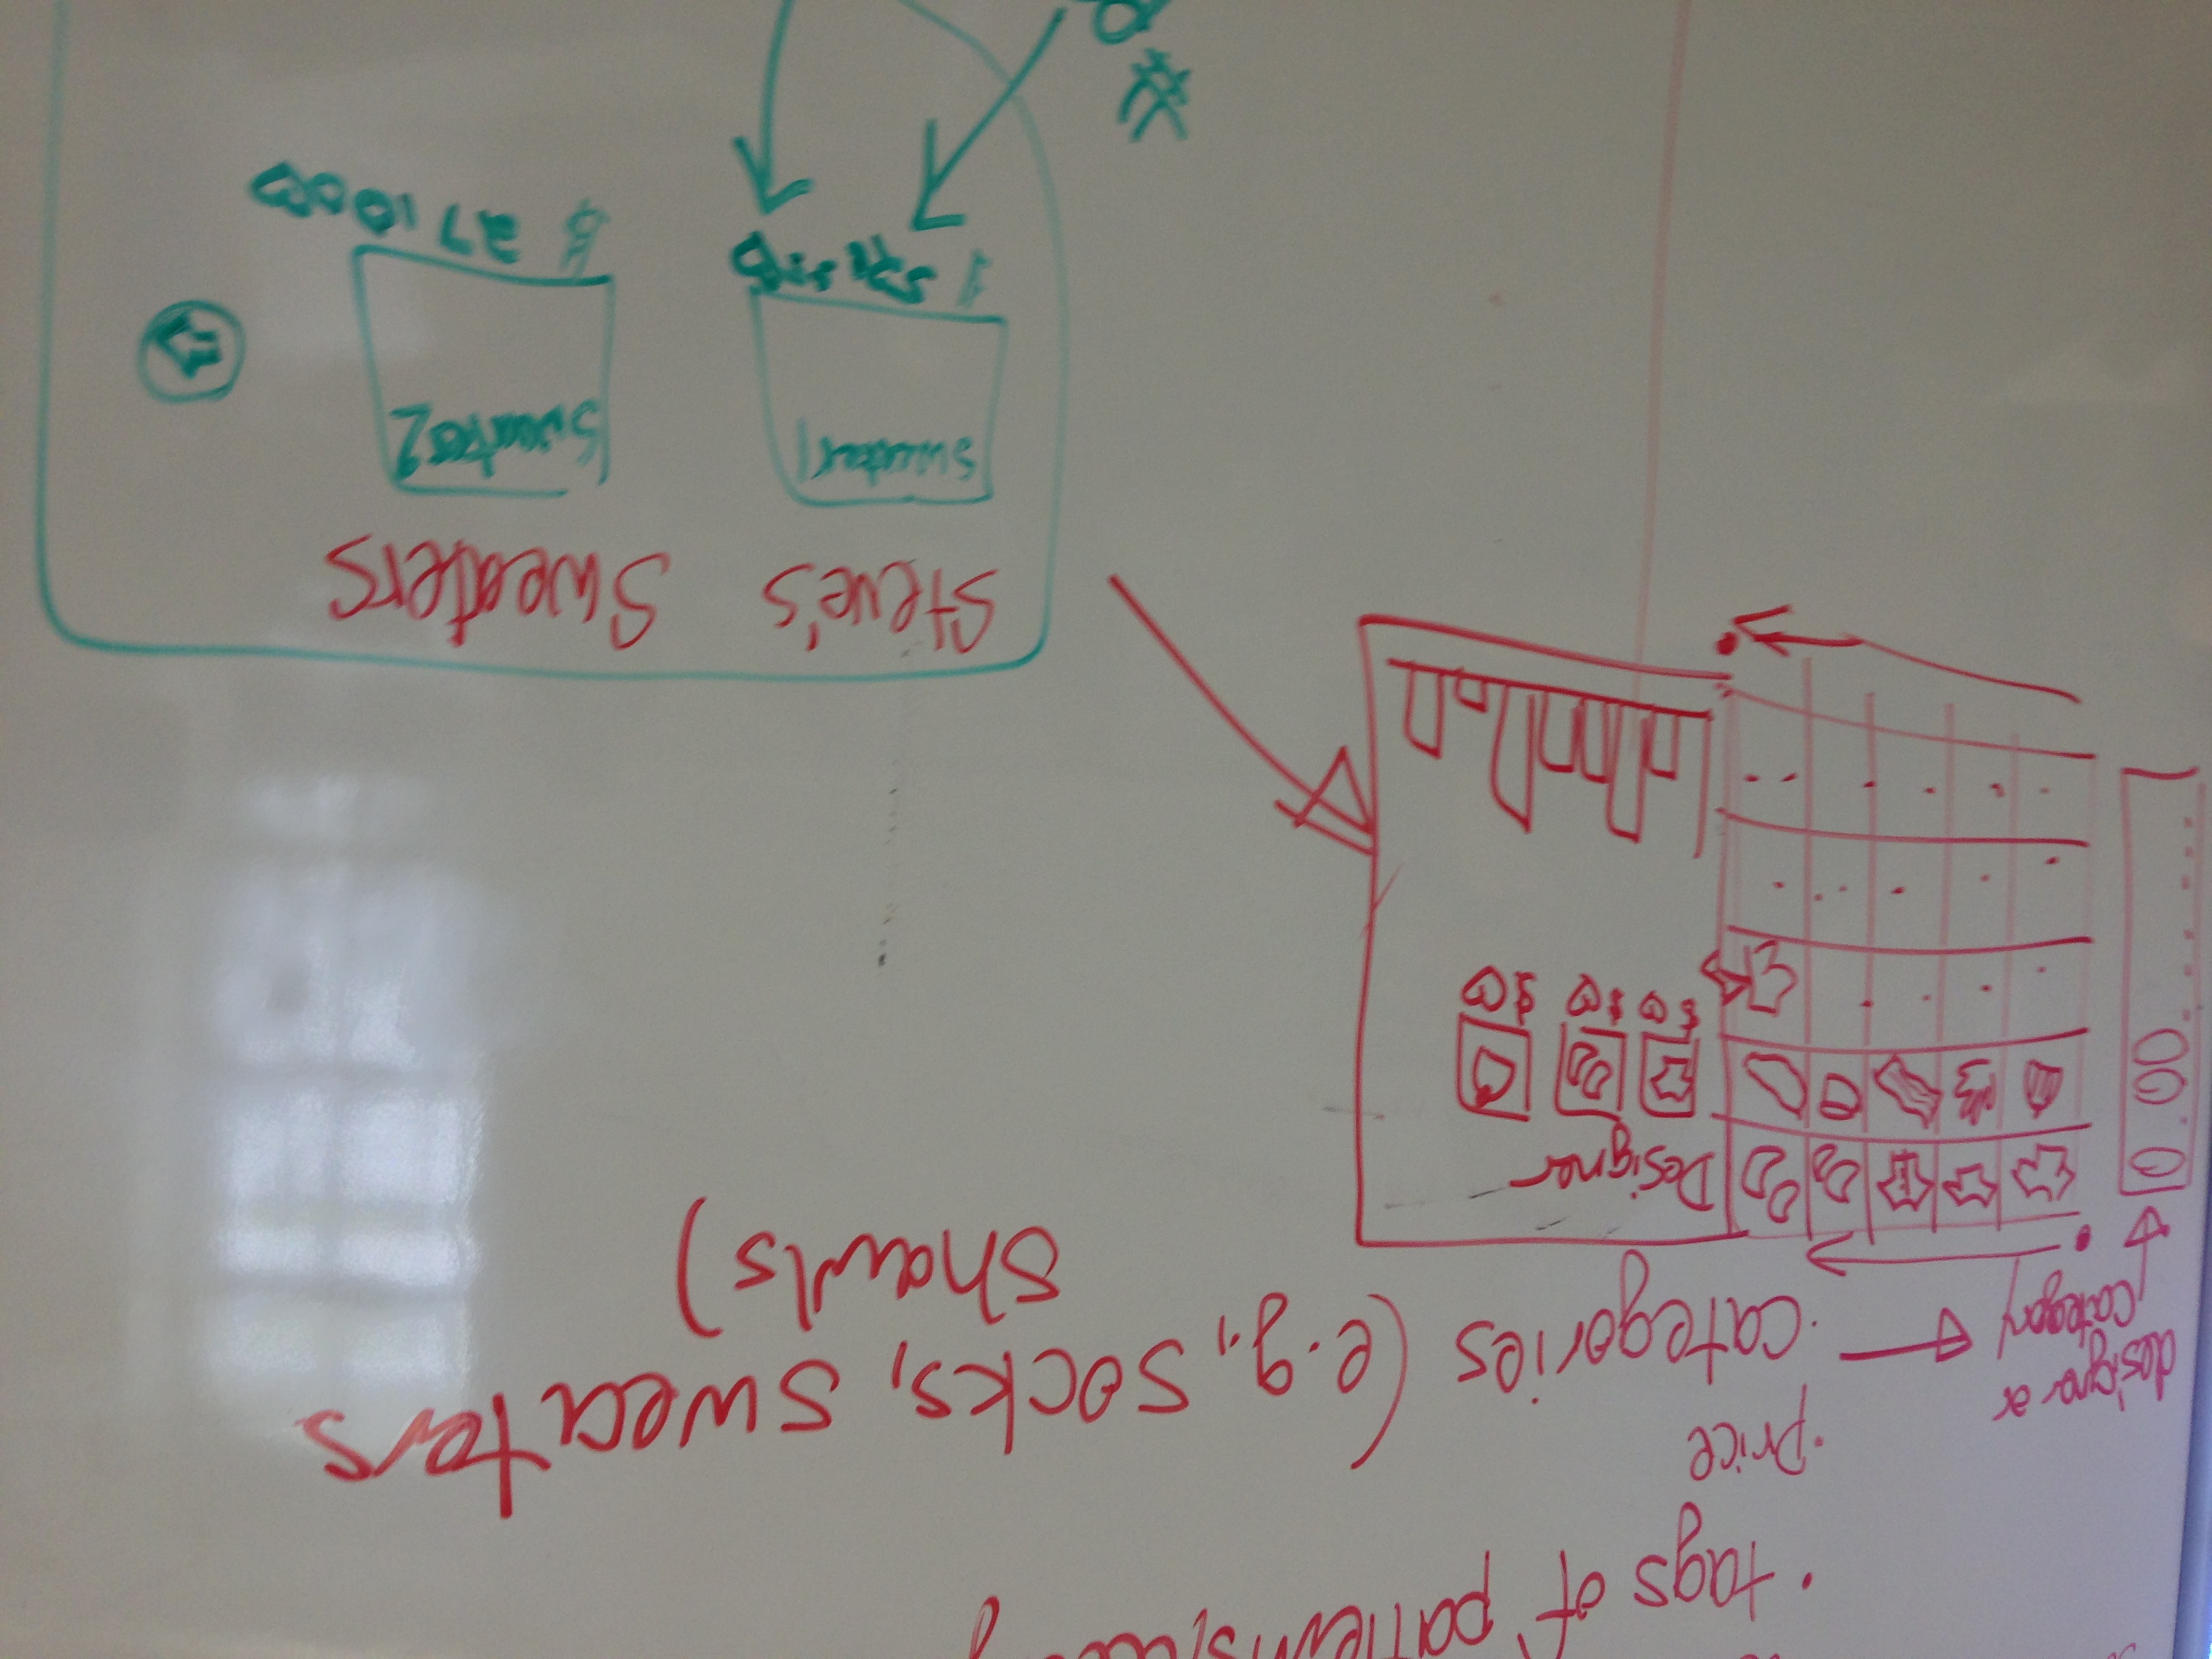 • tags of
• Price
• categories (e.g., socks, sweaters
shawls)
designer or
category
Designer
$ $ $
Steve's Sweaters
Sweater1
Sweater2
$ 27 100
#